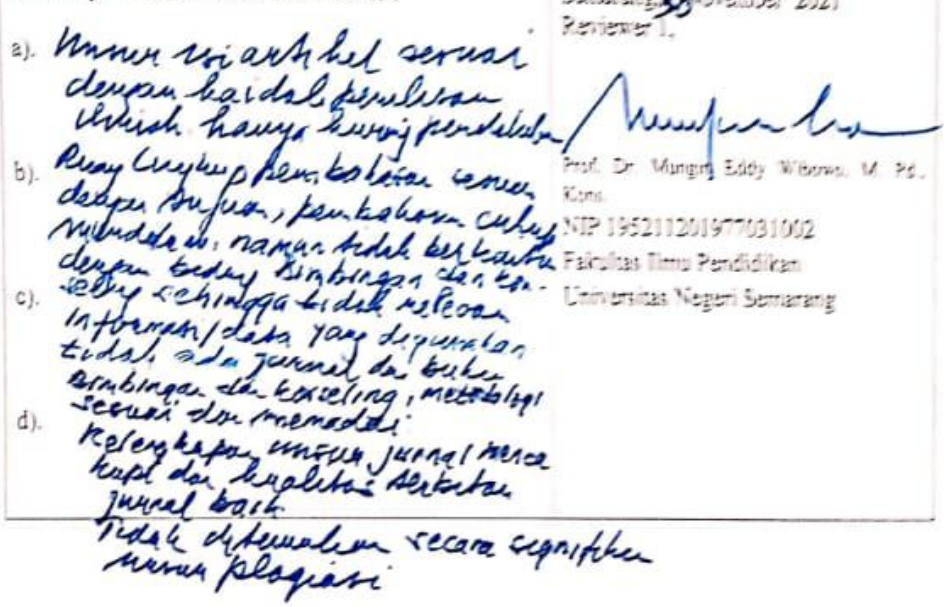 November 2021
Reviewer 1,
a). Unsur isi artikel sesuai
dengan kaidah penulisan
ilmiah hanya kurang pendalaman
b). Ruang lingkup pembahasan sesuai
dengan tujuan, pembahasan cukup
mendalam, namun tidak berkaitan
dengan bidang Bimbingan dan kon-
seling sehingga tidak relevan
c).
Informasi/data yang digunakan
tidak ada jurnal dan buku
Bimbingan dan konseling, metodologi
sesuai dan memadai
d).
Kelengkapan unsur jurnal menca
kupi dan kualitas terbitan
jurnal baik
Tidak ditemukan secara signifikan
unsur plagiasi
Prof. Dr. Mungin Eddy Wibowo, M. Pd.,
Kons.
NIP 195211201977031002
Fakultas Ilmu Pendidikan
Universitas Negeri Semarang